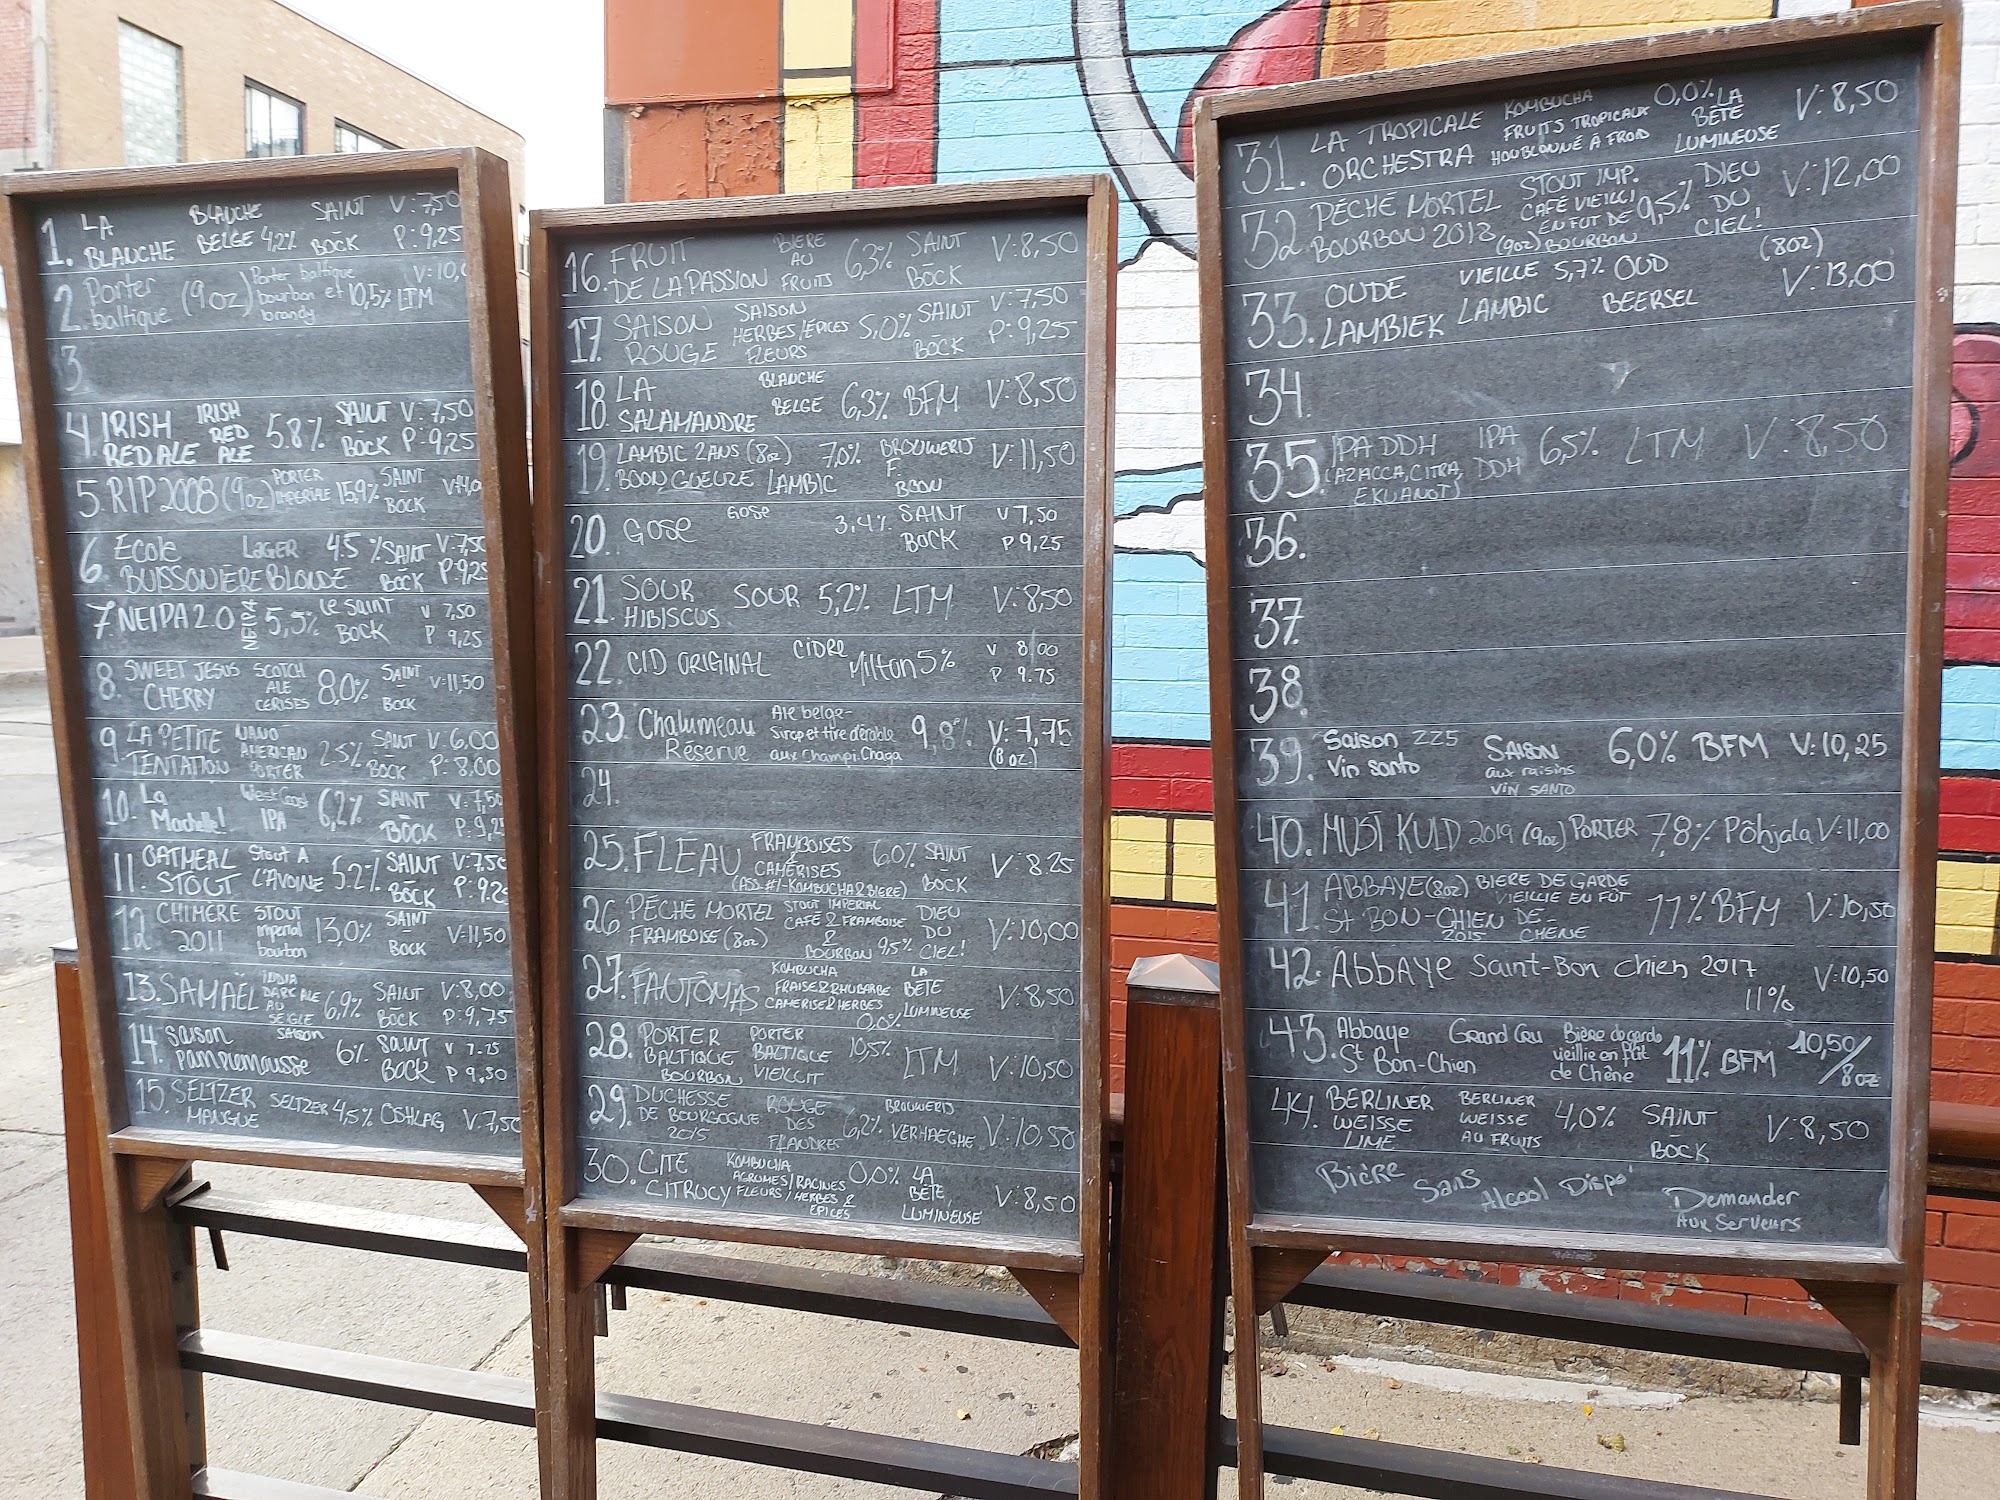 1. LA BLANCHE SAINT V: 7,50
BLANCHE BELGE 4,2% BOCK P: 9,25
2. Porter (9oz) Porter baltique 10,5% LTM V: 10,
baltique bourbon et
brandy
3.
4. IRISH IRISH 5.8% SAINT V: 7,50
RED ALE RED BOCK P: 9,25
ALE
5. RIP 2008 (9oz) PORTER 15,9% SAINT
IMPERIALE BOCK
6. Ecole LAGER 4.5% SAINT V: 7,50
BUISSONIERE BLONDE BOCK P: 9,25
7. NEIPA 2.0 NEIPA 5,5% LE SAINT V 7,50
BOCK P 9,25
8. SWEET JESUS SCOTCH 8,0% SAINT V: 11,50
CHERRY ALE - BOCK
CERISES
9. LA PETITE NANO 2.5% SAINT V: 6,00
TENTATION AMERICAN BOCK P: 8,00
PORTER
10. La West Coast 6,2% SAINT V: 7,50
Machette! IPA BOCK P: 9,2
11. OATMEAL STOUT A 5.2% SAINT V: 7,50
STOUT L'AVOINE BOCK P: 9.25
12. CHIMERE STOUT 13,0% SAINT V: 11,50
2011 imperial - BOCK
bourbon
13. SAMAËL INDIA 6,9% SAINT V: 8,00
DARK ALE BOCK P: 9,75
AU
SEIGLE
14. Saison SAISON 6% SAINT V 7.75
pamplemousse BOCK P 9,50
15. SELTZER SELTZER 4,5% OSHLAG V: 7,50
MANGUE
16. FRUIT BIERE 6,3% SAINT V: 8,50
DE LA PASSION AU BOCK
FRUITS
17. SAISON SAISON 5,0% SAINT V: 7,50
ROUGE HERBES/ÉPICES BOCK P: 9,25
FLEURS
18. LA BLANCHE 6,3% BFM V: 8,50
SALAMANDRE BELGE
19. LAMBIC 2 ANS (8oz) 7,0% BROUWERIJ V: 11,50
BOON GUEUZE LAMBIC F.
BOON
20. GOSE GOSE 3,4% SAINT V 7,50
BOCK P 9,25
21. SOUR SOUR 5,2% LTM V: 8,50
HIBISCUS
22. CID ORIGINAL CIDRE Milton 5% V 8.00
P 9.75
23. Chalumeau Ale belge- 9,8% V: 7,75
Réserve sirop et tire d'érable (8 oz.)
aux Champi. Chaga
24.
25. FLEAU FRAMBOISES 6,0% SAINT V: 8.25
& CAMERISES BOCK
(ASS. #1-KOMBUCHA & BIERE)
26. PÉCHÉ MORTEL STOUT IMPERIAL DIEU V: 10,00
FRAMBOISE (8oz) CAFÉ & FRAMBOISE DU
& BOURBON 9,5% CIEL!
27. FANTÔMAS KOMBUCHA LA V: 8,50
FRAISE & RHUBARBE BÊTE
CAMERISE & HERBES LUMINEUSE
0,0%
28. PORTER PORTER 10,5% LTM V: 10,50
BALTIQUE BALTIQUE
BOURBON VIEILLIT
29. DUCHESSE ROUGE 6,2% BROUWERIJ V: 10,50
DE BOURGOGNE DES VERHAEGHE
2015 FLANDRES
30. CITE KOMBUCHA 0,0% LA V: 8,50
CITRUCY AGRUMES/RACINES BÊTE
FLEURS/HERBES & LUMINEUSE
EPICES
31. LA TROPICALE KOMBUCHA 0,0% LA V: 8,50
ORCHESTRA FRUITS TROPICAUX BÊTE
HOUBLONNÉ À FROID LUMINEUSE
32. PÉCHÉ MORTEL STOUT IMP. 9,5% DIEU V: 12,00
BOURBON 2018 CAFÉ VIEILLI DU
(9oz) EN FUT DE CIEL!
BOURBON
33. OUDE VIEILLE 5,7% OUD (8oz)
LAMBIEK LAMBIC BEERSEL V: 13,00
34.
35. IPA DDH IPA 6,5% LTM V: 8,50
(AZACCA, CITRA, DDH
EKUANOT)
36.
37.
38.
39. Saison 225 SAISON 6,0% BFM V: 10,25
Vin santo aux raisins
VIN SANTO
40. MUST KULD 2019 (9oz) PORTER 7,8% Põhjala V: 11,00
41. ABBAYE (8oz) BIERE DE GARDE 11% BFM V: 10,50
ST BON-CHIEN VIEILLIE EN FÛT
2015 DE CHENE
42. ABBAYE Saint-Bon Chien 2017 V: 10,50
11%
43. Abbaye Grand Cru Bière de garde 11% BFM 10,50/
St Bon-Chien vieillie en fût 8oz
de Chêne
44. BERLINER BERLINER 4,0% SAINT V: 8,50
WEISSE WEISSE - BOCK
LIME AU FRUITS
Bière Sans Alcool Dispo! Demander
Aux Serveurs